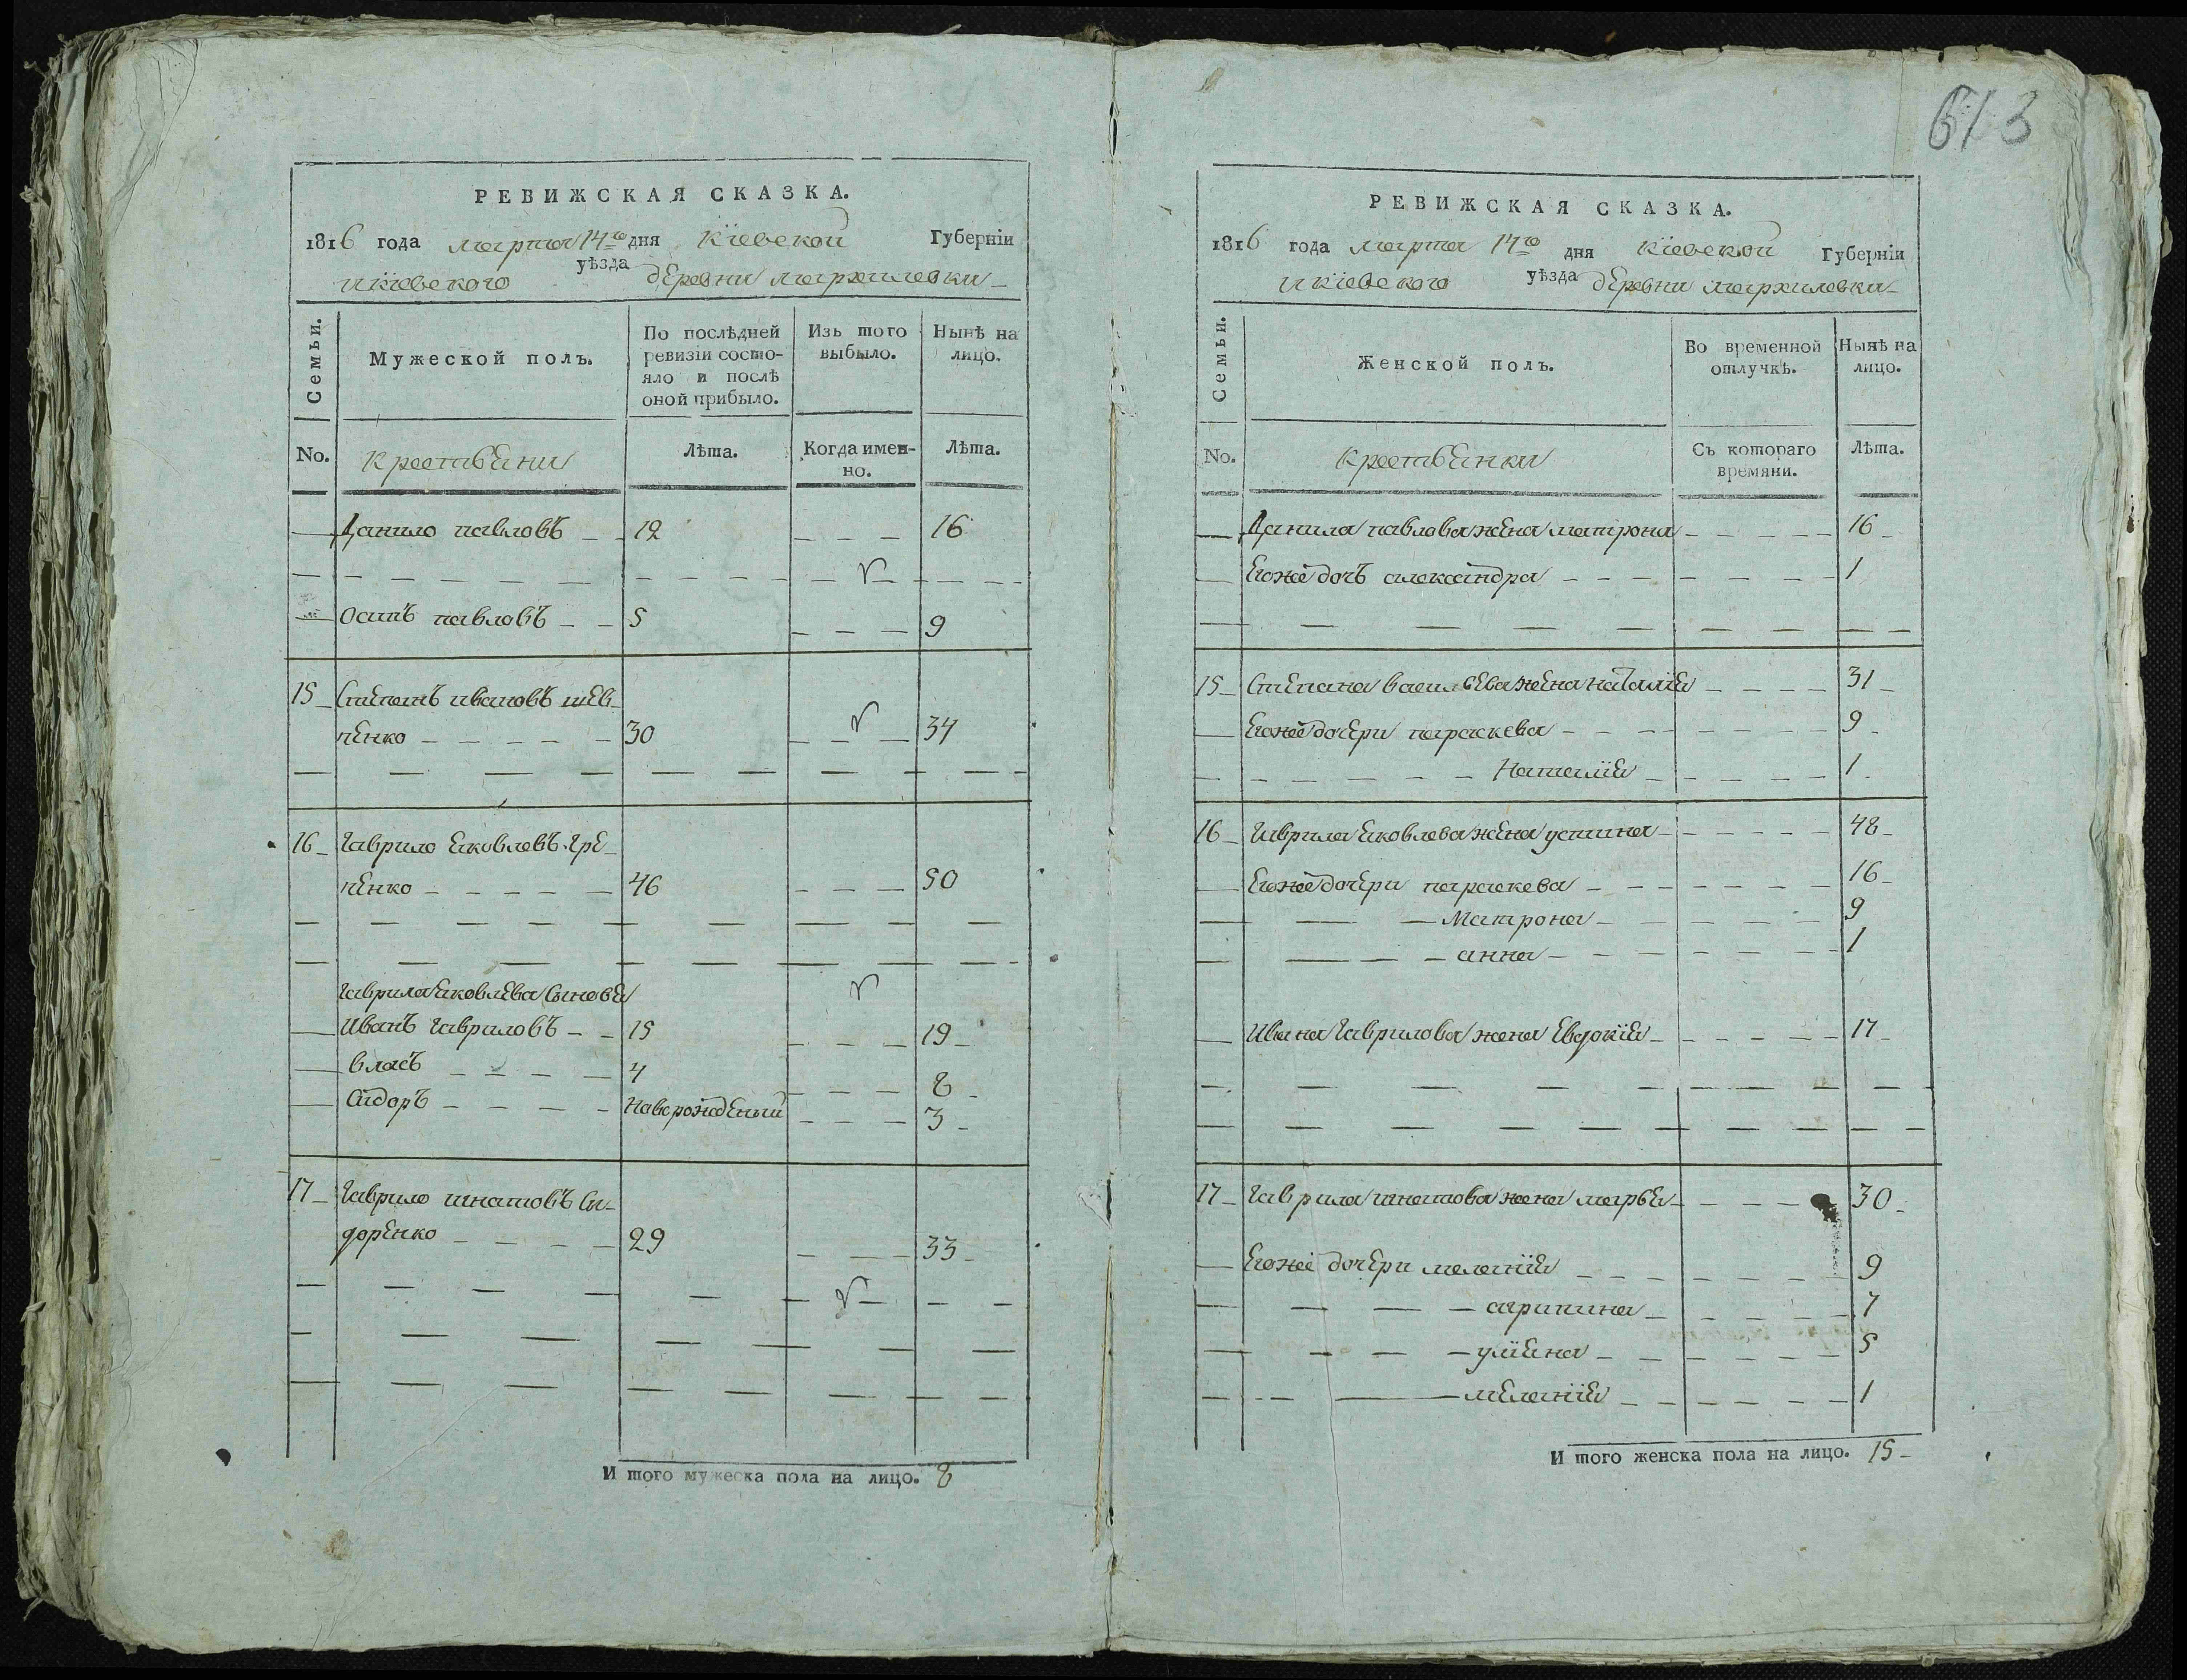 613
РЕВИЖСКАЯ СКАЗКА.
1816 года марта 14го дня Кіевской Губерніи
и кіевского уѣзда дЕревни мархилевки
Семьи.
Мужеской полъ.
По послѣдней ревизіи состояло и послѣ оной прибыло.
Изъ того выбыло.
Нынѣ на лицо.
No.
крестьЯни
Лѣта.
Когда именно.
Лѣта.
Данило павловъ 12 16
Осипъ павловъ 5 9
15 СтЕпанъ ивановъ шЕв
чЕнко 30 34
16 Гаврило Яковлевъ грЕ
чЕнко 46 50
Гаврила ЯковлЕва сыновЯ
Иванъ Гавриловъ 15 19
власъ 4 8
Сидоръ новорождЕный 3
17 Гаврило игнатовъ Си
дорЕнко 29 33
И того мужеска пола на лицо. 8
РЕВИЖСКАЯ СКАЗКА.
1816 года марта 14го дня кіевской Губерніи
и кіевского уѣзда дЕревни мархилевки
Семьи.
Женской полъ.
Во временной отлучкѣ.
Нынѣ на лицо.
No.
крестьЯнки
Съ котораго времяни.
Лѣта.
Данила павлова жЕна матрона 16
Егоже дочь александра 1
15 СтЕпана васильЕва жЕна наталіЯ 31
Егоже дочЕри параскева 9
НаталіЯ 1
16 Гаврила Яковлева жЕна устина 48
Егоже дочЕри параскева 16
Матрона 9
анна 1
Ивана Гаврилова жена ЕвдокіЯ 17
17 Гаврила игнатова жена марьЯ 30
Егоже дочЕри меланіЯ 9
агрипина 7
уліЯна 5
мЕланіЯ 1
И того женска пола на лицо. 15